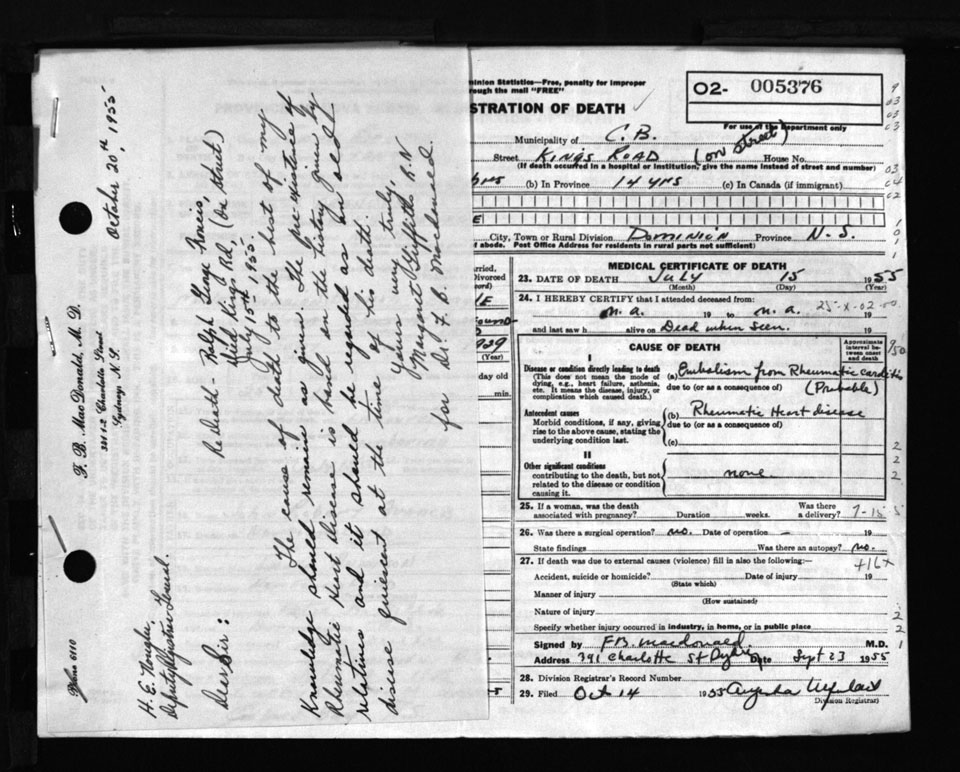 Phone 6110
F. B. MacDonald, M. D.
Charlotte Street
Sydney, N. S.
October 20th, 1955
Deputy Registrar General.
Re Death - Ralph George Francis,
Died Kings Rd, (On Street)
July 15th 1955.
Dear Sir:
The cause of death to the best of my
Knowledge should remain as given. The
Rheumatic Heart Disease is based on the history given by
relatives and it should be regarded as an old
disease quiescent at the time of his death.
Yours very truly,
Margaret Griffiths R.N
for Dr. F. B. MacDonald.
minion Statistics—Free, penalty for improper
rough the mail "FREE"
STRATION OF DEATH
O2- 005376
For use of the Department only
Municipality of C. B.
Street KINGS ROAD (on street) House No.
(If death occurred in a hospital or institution, give the name instead of street and number)
yrs (b) In Province 14 yrs (c) In Canada (if immigrant)
E
City, Town or Rural Division DOMINION Province N. S.
of abode. Post Office Address for residents in rural parts not sufficient)
MEDICAL CERTIFICATE OF DEATH
23. DATE OF DEATH July 15 1955
(Month) (Day) (Year)
24. I HEREBY CERTIFY that I attended deceased from:
n. a. 19 to n. a. 19
and last saw h alive on Dead when seen.
CAUSE OF DEATH
Approximate interval between onset and death
I
Disease or condition directly leading to death
(This does not mean the mode of dying, e.g., heart failure, asthenia, etc. It means the disease, injury, or complication which caused death.)
(a) Embolism from Rheumatic carditis
due to (or as a consequence of) (Probable)
Antecedent causes
Morbid conditions, if any, giving rise to the above cause, stating the underlying condition last.
(b) Rheumatic Heart disease
due to (or as a consequence of)
(c)
II
Other significant conditions
contributing to the death, but not related to the disease or condition causing it.
none
25. If a woman, was the death associated with pregnancy? Duration weeks. Was there a delivery?
26. Was there a surgical operation? no. Date of operation — 19
State findings Was there an autopsy? no.
27. If death was due to external causes (violence) fill in also the following:—
Accident, suicide or homicide? Date of injury 19
(State which)
Manner of injury
(How sustained)
Nature of injury
Specify whether injury occurred in industry, in home, or in public place
Signed by F B. macdonald M.D.
Address 391 Charlotte St Date Sept 23 1955
28. Division Registrar's Record Number
29. Filed Oct 14 1955
Division Registrar